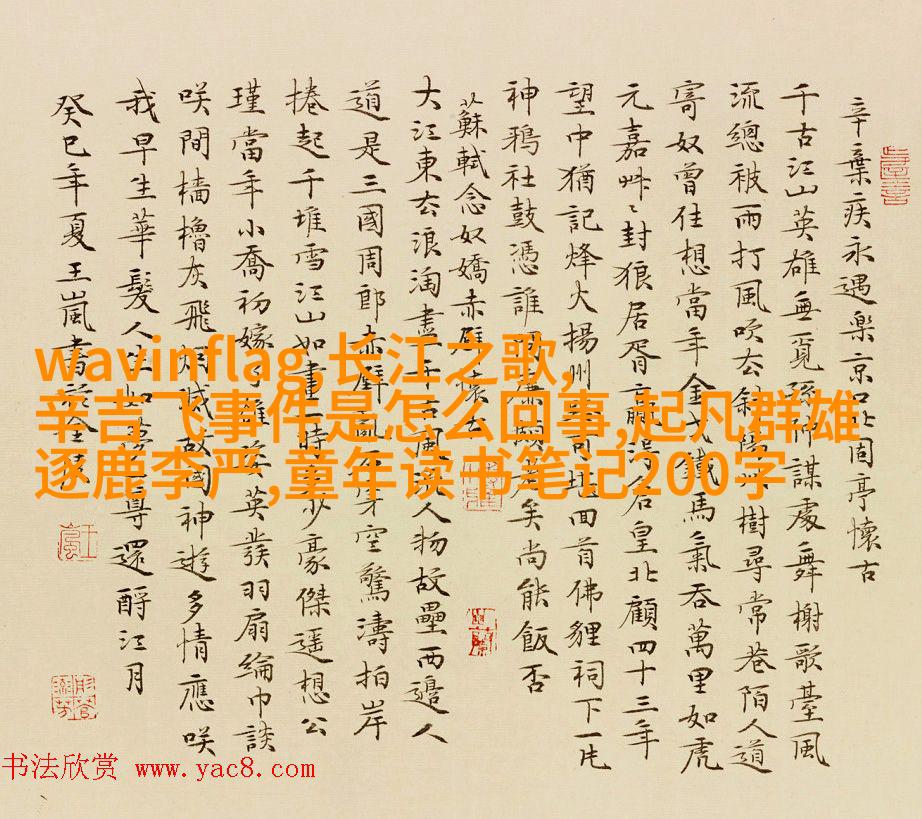 辛棄疾永遇樂京口北固亭懷古
千古江山英雄無覓孫仲謀處舞榭歌臺風
流總被雨打風吹去斜陽草樹尋常巷陌人道
寄奴曾住想當年金戈鐵馬氣吞萬里如虎
元嘉艸〻封狼居胥贏得倉皇北顧四十三年
望中猶記烽火揚州路可堪回首佛貍祠下一片
神鴉社鼓憑誰問廉頗老矣尚能飯否
蘇軾念奴嬌赤壁懷古
大江東去浪淘盡千古風流人物故壘西邊人
道是三國周郎赤壁亂石穿空驚濤拍岸
捲起千堆雪江山如畫一時多少豪傑遥想公
瑾當年小喬初嫁了雄姿英發羽扇綸巾談
咲間檣櫓灰飛煙滅故國神遊多情應咲
我早生華髮人生如夢一尊還酹江月
癸巳年夏王嵐書於金陵
wavinflag,长江之歌,
辛吉飞事件是怎么回事,起凡群雄
逐鹿李严,童年读书笔记200字
书法欣赏 www.yac8.com